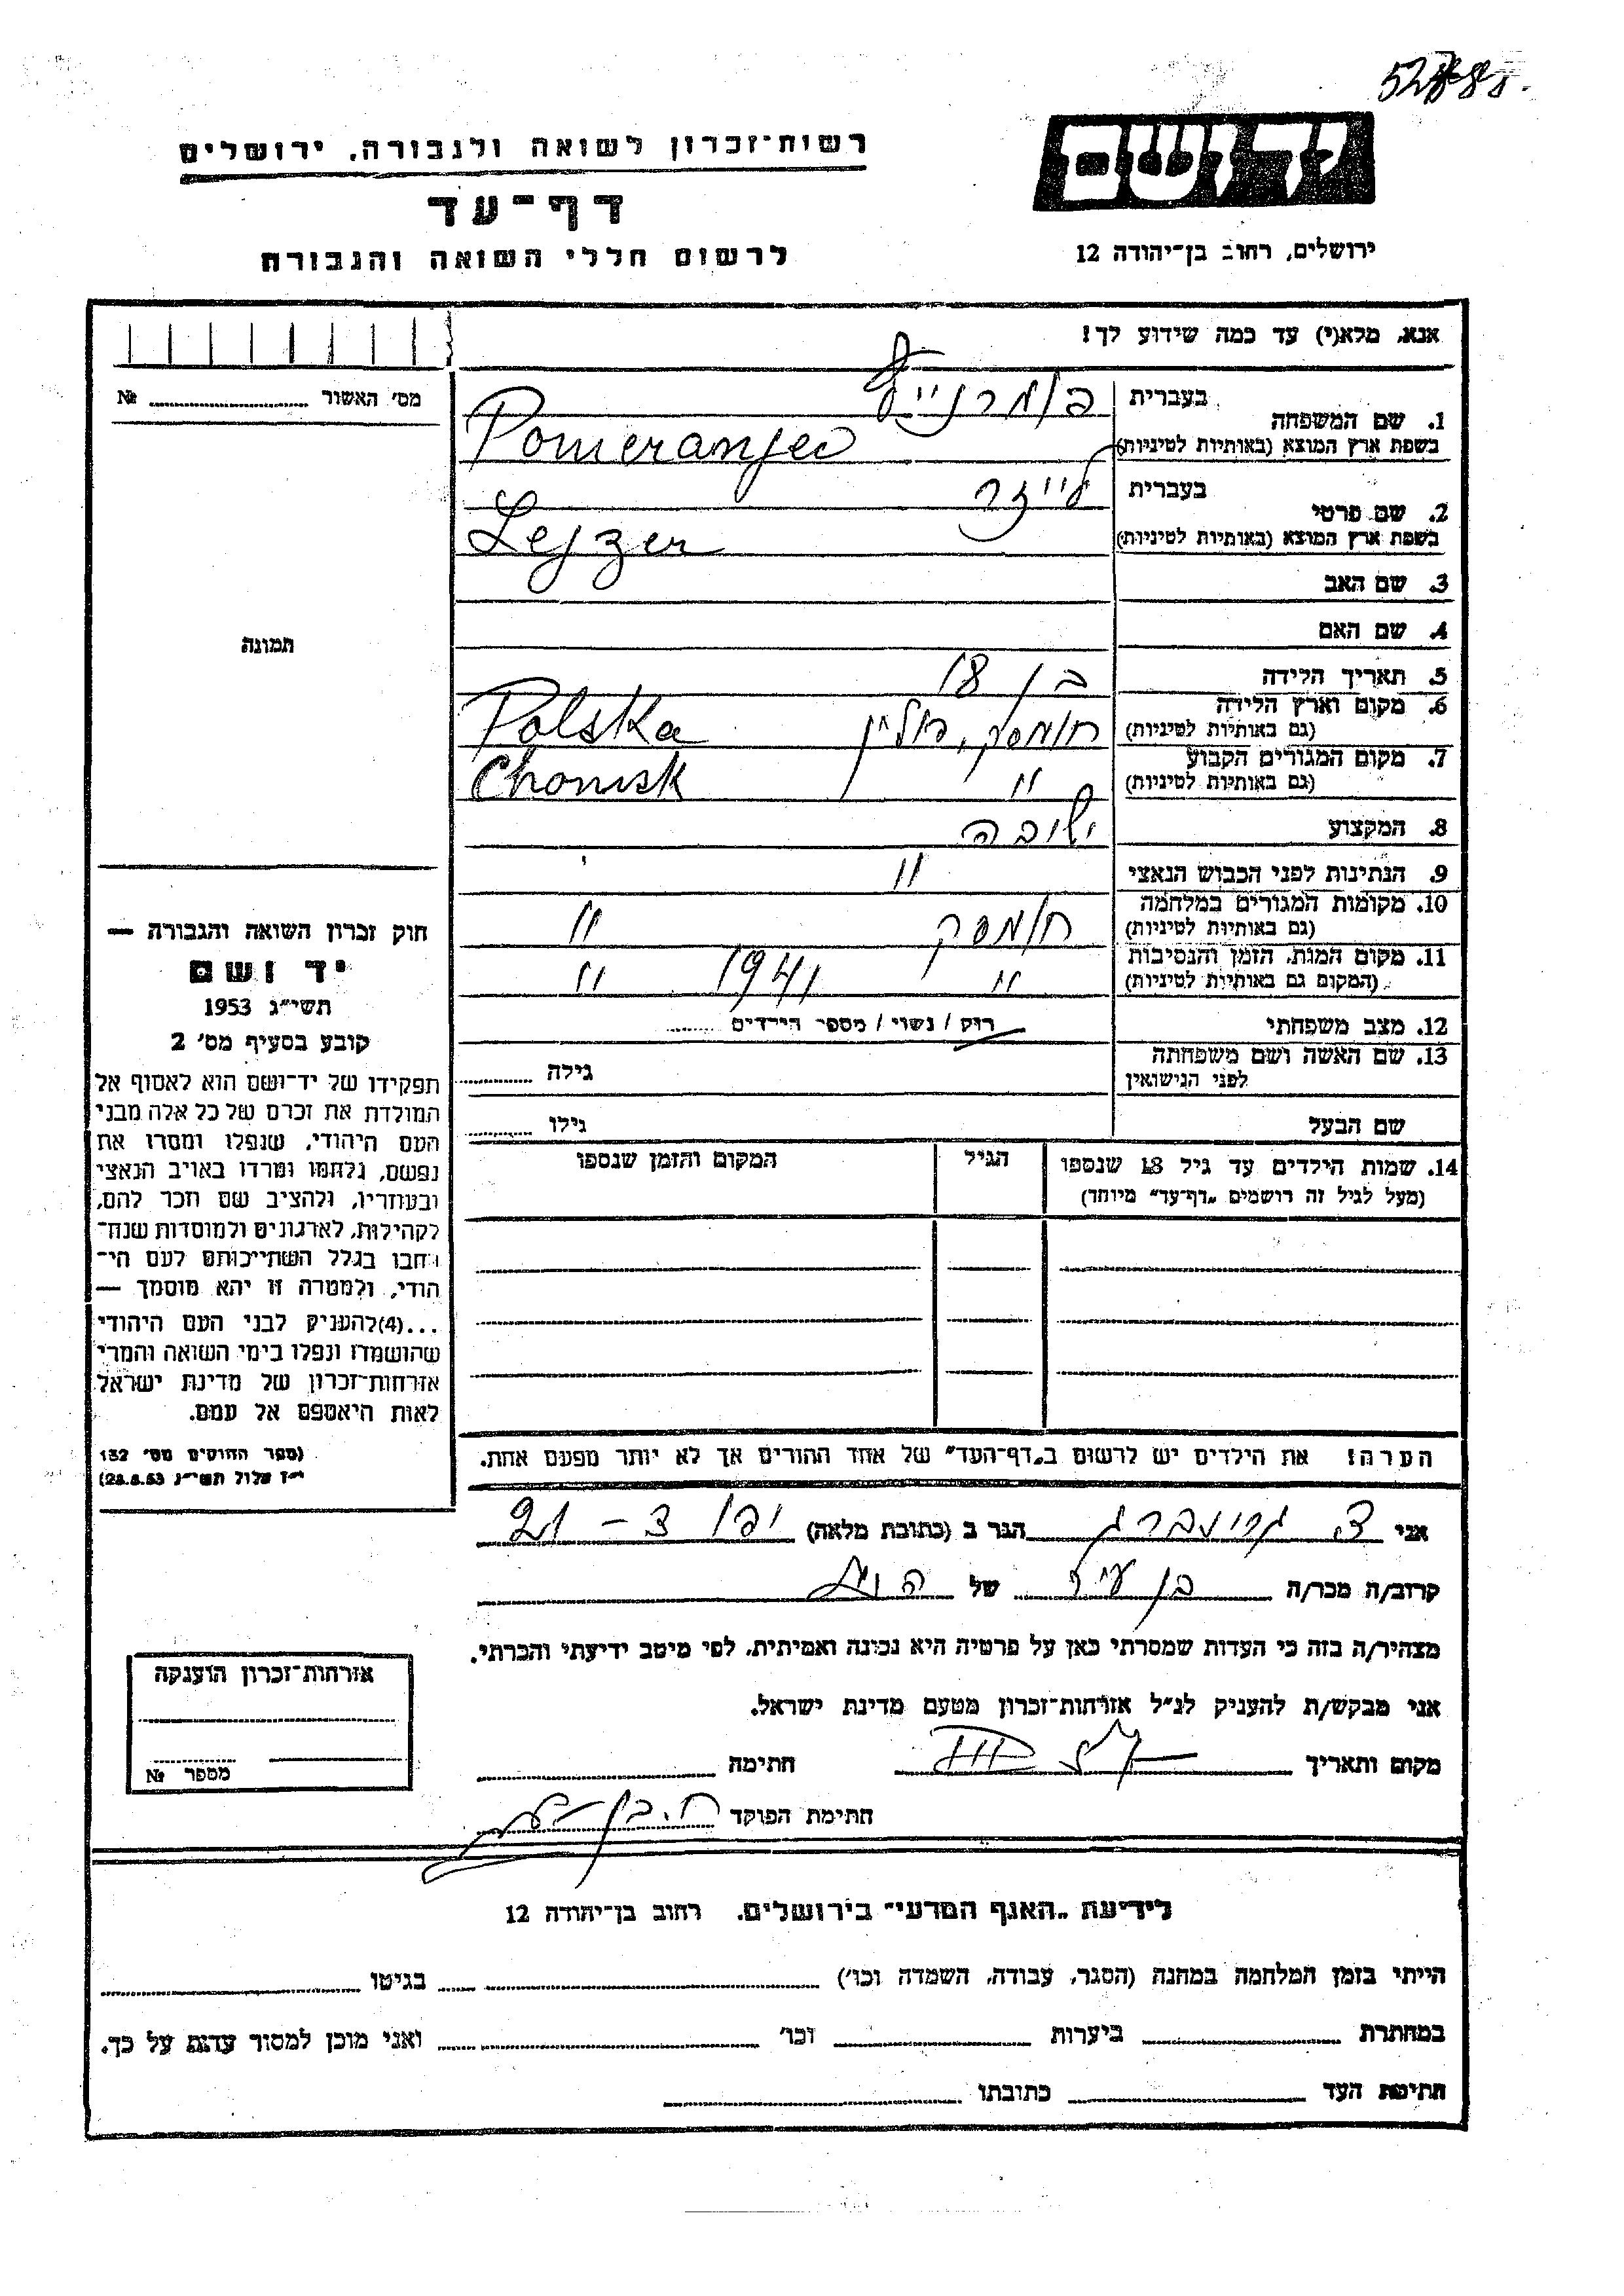 רשות־זכרון לשואה ולגבורה, ירושלים
דף־עד
לרשום חללי השואה והגבורה
יד ושם
ירושלים, רחוב בן־יהודה 12
אנא, מלא(י) עד כמה שידוע לך!
מס׳ האשור № 
1. שם המשפחה בעברית
בשפת ארץ המוצא (באותיות לטיניות) Pomeraniec
2. שם פרטי בעברית לייזר
בשפת ארץ המוצא (באותיות לטיניות) Lejzer
3. שם האב
4. שם האם
תמונה
5. תאריך הלידה בן 18
6. מקום וארץ הלידה (גם באותיות לטיניות) חומסק, פולין Polska
7. מקום המגורים הקבוע (גם באותיות לטיניות) " Chomsk
8. המקצוע ישיבה
9. הנתינות לפני הכבוש הנאצי "
10. מקומות המגורים במלחמה (גם באותיות לטיניות) חומסק "
11. מקום המות, הזמן והנסיבות (המקום גם באותיות לטיניות) " 1941 "
12. מצב משפחתי רוק / נשוי / מספר הילדים
13. שם האשה ושם משפחתה לפני הנישואין גילה
שם הבעל גילו
14. שמות הילדים עד גיל 18 שנספו הגיל המקום והזמן שנספו
(מעל לגיל זה רושמים „דף־עד״ מיוחד)
חוק זכרון השואה והגבורה —
יד ושם
תשי״ג 1953
קובע בסעיף מס׳ 2
תפקידו של יד־ושם הוא לאסוף אל
המולדת את זכרם של כל אלה מבני
העם היהודי, שנפלו ומסרו את
נפשם, נלחמו ומרדו באויב הנאצי
ובעוזריו, ולהציב שם וזכר להם,
לקהילות, לארגונים ולמוסדות שנח־
רבו בגלל השתייכותם לעם הי־
הודי, ולמטרה זו יהא מוסמך —
...(4)להעניק לבני העם היהודי
שהושמדו ונפלו בימי השואה והמרי
אזרחות־זכרון של מדינת ישראל
לאות היאספם אל עמם.
(ספר החוקים מס׳ 132
י״ז אלול תשי״ג 28.8.53)
הערה! את הילדים יש לרשום ב„דף־העד״ של אחד ההורים אך לא יותר מפעם אחת.
אני צ. גרינברג הגר ב (כתובת מלאה) יפו צ - 21
קרוב/ה מכר/ה בן עיר של
מצהיר/ה בזה כי העדות שמסרתי כאן על פרטיה היא נכונה ואמיתית, לפי מיטב ידיעתי והכרתי.
אני מבקש/ת להעניק לנ״ל אזרחות־זכרון מטעם מדינת ישראל.
מקום ותאריך חתימה
חתימת הפוקד
אזרחות־זכרון הוענקה
מספר №
לידיעת „האגף המדעי״ בירושלים, רחוב בן־יהודה 12
הייתי בזמן המלחמה במחנה (הסגר, עבודה, השמדה וכו׳) בגיטו
במחתרת ביערות וכו׳ ואני מוכן למסור עדות על כך.
חתימת העד כתובתו